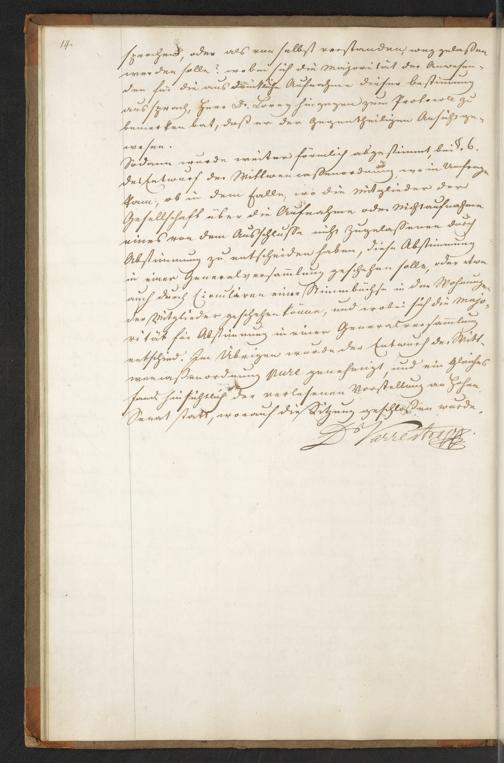 14.
sprechend, oder als von selbst verstanden, weg gelassen
werden solle? wobei sich die Majorität der Anwesen-
den für die ausdrückliche Aufnahme dieser Bestimmung
aussprach, Herr Dr. Lorey hingegen zum Protocoll zu
bemerken bat, daß er der gegentheiligen Ansicht ge-
wesen.
Sodann wurde weiter förmlich abgestimmt, bei §. 6.
des Entwurfs der Wittwencassenordnung, wo in Umfrage
kam, ob in dem Falle, wo die Mitglieder der
Gesellschaft über die Aufnahme oder Nichtaufnahme
eines von dem Ausschusse nicht Zugelassenen durch
Abstimmung zu entscheiden haben, diese Abstimmung
in einer Generalversammlung geschehen solle, oder etwa
auch durch Circuliren einer Stimmbüchse in den Wohnungen
der Mitglieder geschehen könne, und wobei sich die Majo-
rität für Abstimmung in einer Generalversammlung
entschied. Im Übrigen wurde der Entwurf der Witt-
wencassenordnung pure genehmigt, und ein Gleiches
fand hinsichtlich der verlesenen Vorstellung an Hohen
Senat statt, worauf die Sitzung geschlossen wurde.
Dr Varrentrapp